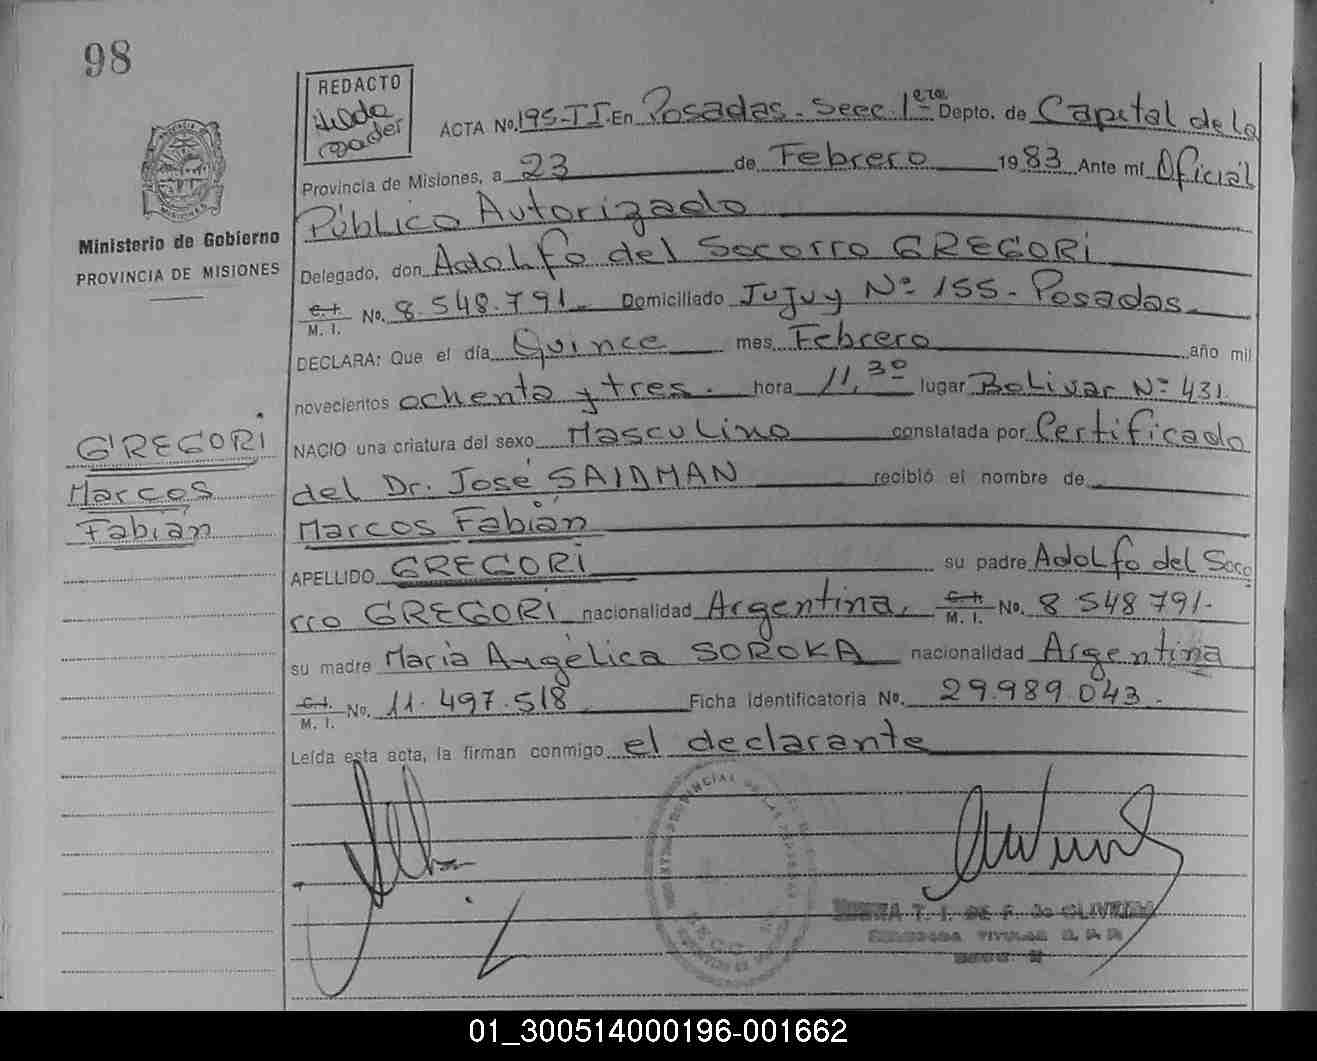 98
REDACTO
Hilda
Bader
ACTA No. 195-II. En Posadas. Secc. 1era Depto. de Capital de la
Provincia de Misiones, a 23 de Febrero 1983 Ante mí Oficial
Público Autorizado
Ministerio de Gobierno
PROVINCIA DE MISIONES
Delegado, don Adolfo del Socorro GREGORI
C.I.
M. I. No. 8.548.791. Domiciliado Jujuy Nº 155- Posadas
DECLARA: Que el día Quince mes Febrero año mil
novecientos ochenta y tres. hora 11,30 lugar Bolivar Nº 431.
NACIO una criatura del sexo Masculino constatada por Certificado
del Dr. José SAIDMAN recibió el nombre de
Marcos Fabián
GREGORI
Marcos
Fabián
APELLIDO GREGORI su padre Adolfo del Soco
rro GREGORI nacionalidad Argentina, C.I. M. I. No. 8 548 791.
su madre María Angélica SOROKA nacionalidad Argentina
C.I. M. I. No. 11.497.518 Ficha identificatoria No. 29.989.043.
Leída esta acta, la firman conmigo el declarante
T. I. DE F. de OLIVEIRA
TITULAR R. P. P.
01_300514000196-001662